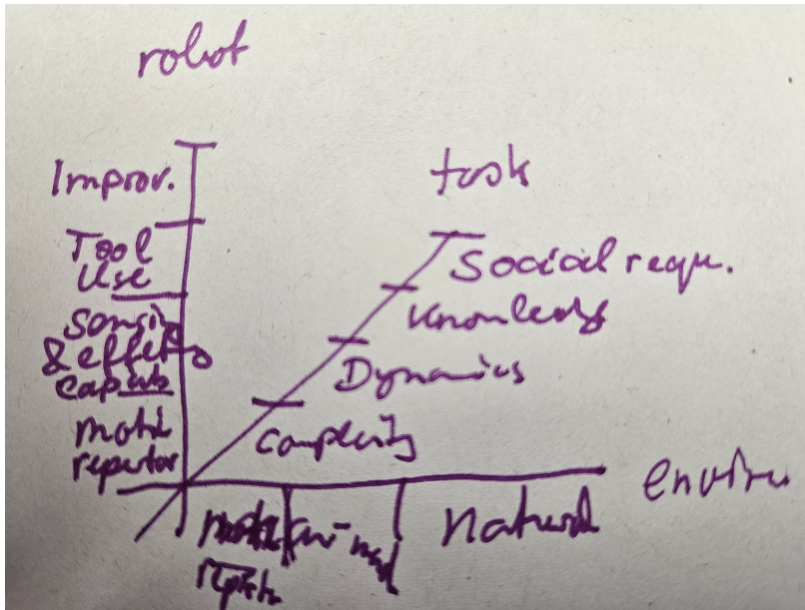 robot
Improv.
Tool
Use
Sensing
& effect
capab
motor
repertor
task
Social requ.
Knowledg
Dynamics
Complexity
enviru
Natural